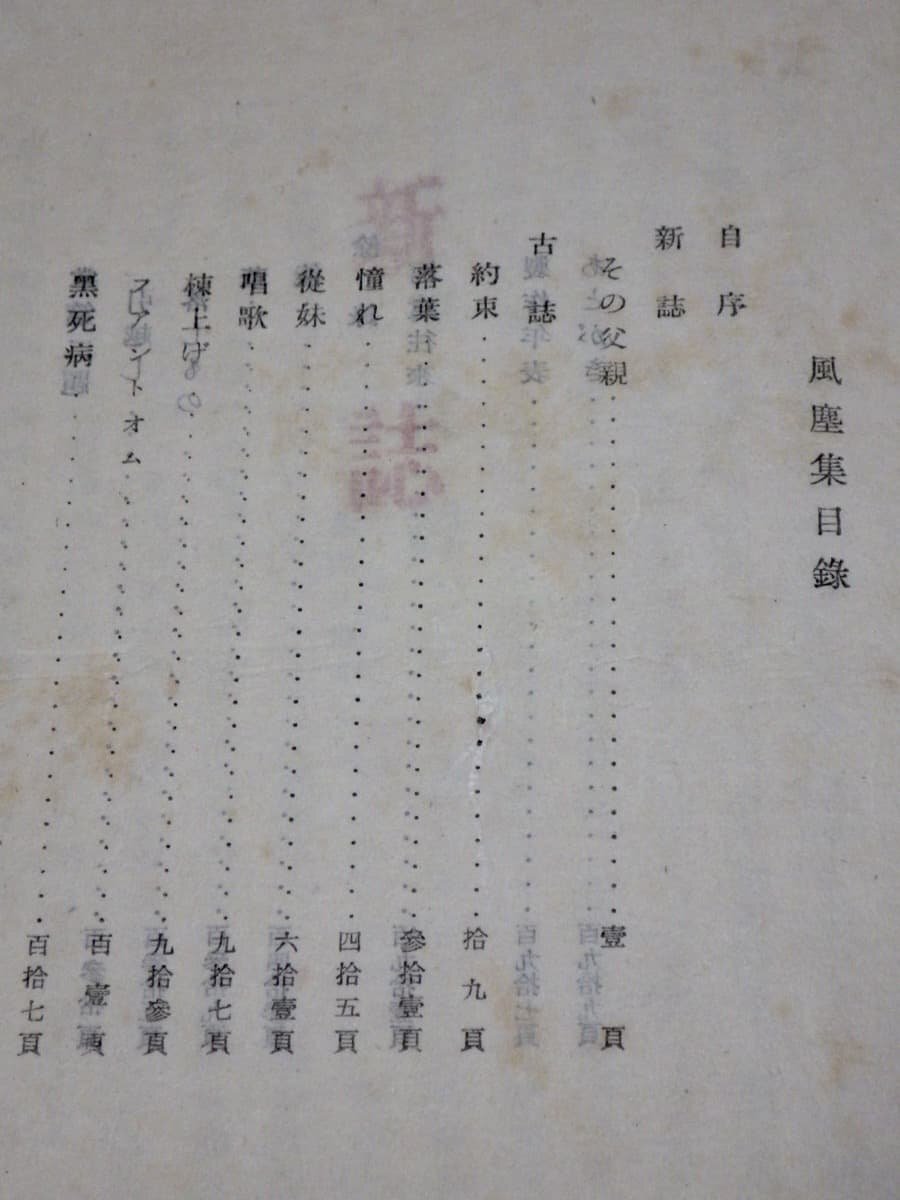 風塵集目錄
自序
新誌
その父親 壹頁
古誌
約束 拾九頁
落葉 參拾壹頁
憧れ 四拾五頁
從妹 六拾壹頁
唱歌 九拾七頁
棟上げ 九拾參頁
ファントオム 百壹頁
黑死病 百拾七頁